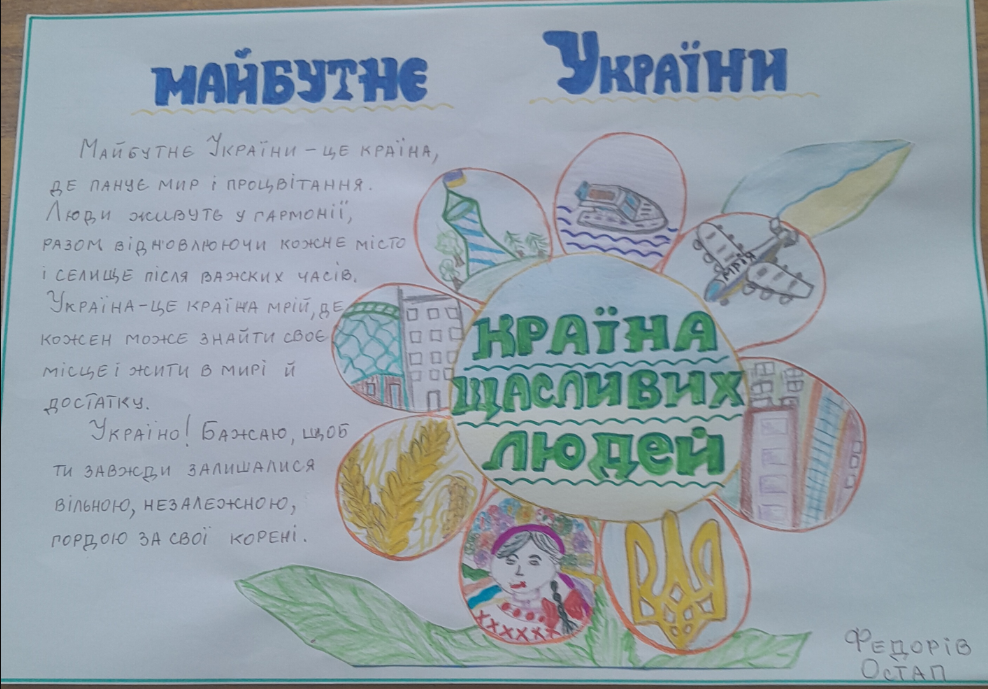 МАЙБУТНЄ УКРАЇНИ
МАЙБУТНЄ УКРАЇНИ – ЦЕ КРАЇНА,
ДЕ ПАНУЄ МИР І ПРОЦВІТАННЯ.
ЛЮДИ ЖИВУТЬ У ГАРМОНІЇ,
РАЗОМ ВІДНОВЛЮЮЧИ КОЖНЕ МІСТО
І СЕЛИЩЕ ПІСЛЯ ВАЖКИХ ЧАСІВ.
УКРАЇНА – ЦЕ КРАЇНА МРІЙ, ДЕ
КОЖЕН МОЖЕ ЗНАЙТИ СВОЄ
МІСЦЕ І ЖИТИ В МИРІ Й
ДОСТАТКУ.
УКРАЇНО! БАЖАЮ, ЩОБ
ТИ ЗАВЖДИ ЗАЛИШАЛИСЯ
ВІЛЬНОЮ, НЕЗАЛЕЖНОЮ,
ГОРДОЮ ЗА СВОЇ КОРЕНІ.
МРІЯ
КРАЇНА
ЩАСЛИВИХ
ЛЮДЕЙ
ФЕДОРІВ
ОСТАП